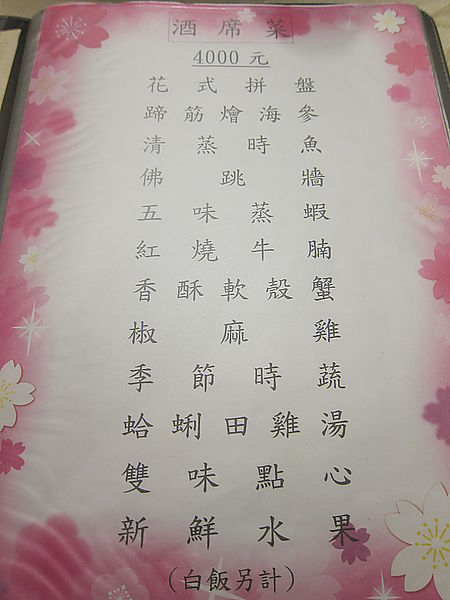 酒席菜
4000元
花式拼盤
蹄筋燴海參
清蒸時魚
佛跳牆
五味蒸蝦
紅燒牛腩
香酥軟殼蟹
椒麻雞
季節時蔬
蛤蜊田雞湯
雙味點心
新鮮水果
(白飯另計)